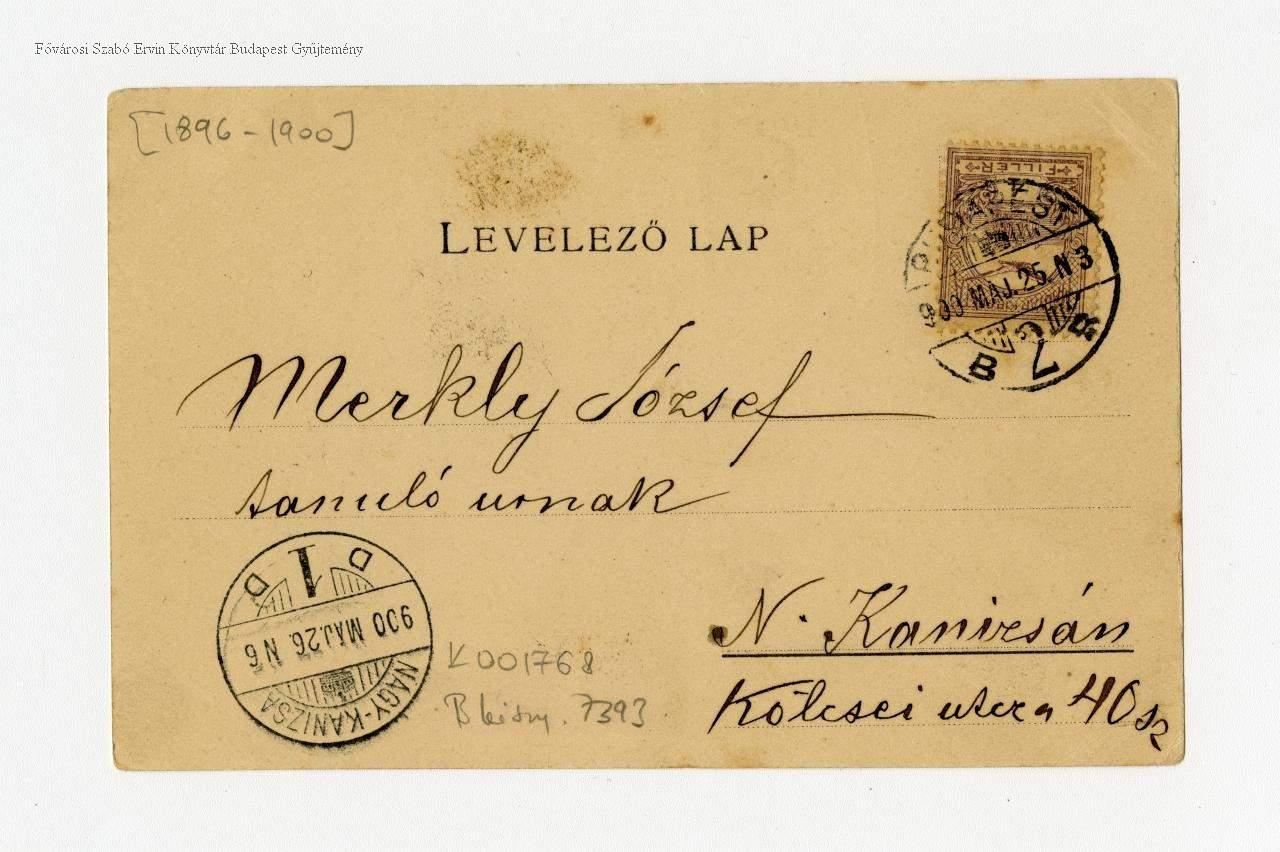 Fővárosi Szabó Ervin Könyvtár Budapest Gyűjtemény
[1896-1900]
FILLÉR
BUDAPEST
900 MÁJ. 25 N 3
B 7
LEVELEZŐ LAP
Merkly József
tanuló urnak
N. Kanizsán
Kölcsei utcza 40 sz
D 1 D
900 MÁJ. 26. N 6
NAGY-KANIZSA
K 001768
7393